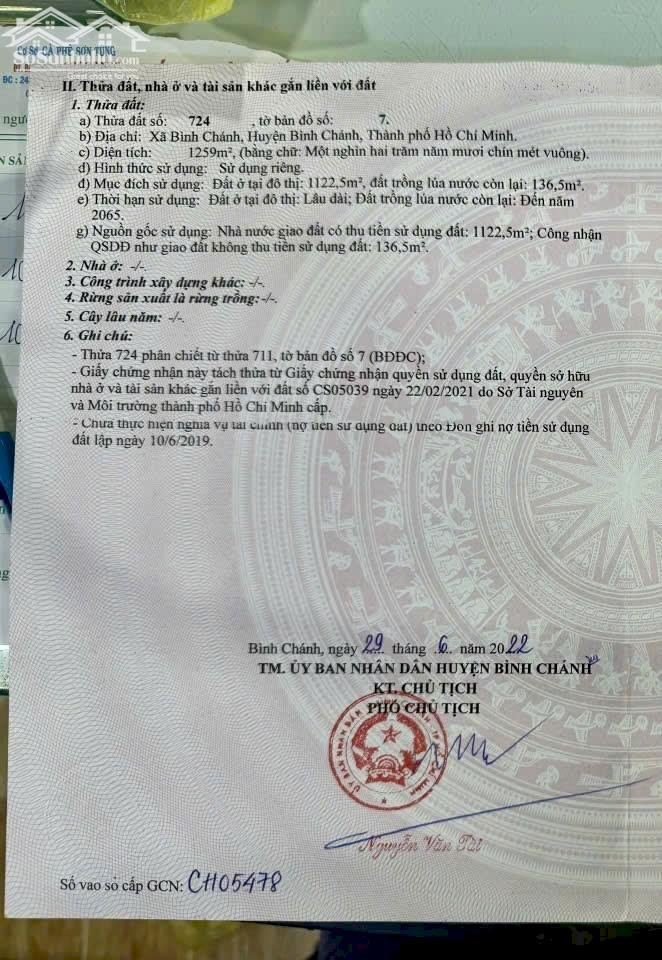 Cơ Sở CÀ PHÊ SƠN TÙNG
Great choice for you
ĐC: 24
II. Thửa đất, nhà ở và tài sản khác gắn liền với đất
1. Thửa đất:
a) Thửa đất số: 724 , tờ bản đồ số: 7.
b) Địa chỉ: Xã Bình Chánh, Huyện Bình Chánh, Thành phố Hồ Chí Minh.
c) Diện tích: 1259m², (bằng chữ: Một nghìn hai trăm năm mươi chín mét vuông).
d) Hình thức sử dụng: Sử dụng riêng.
đ) Mục đích sử dụng: Đất ở tại đô thị: 1122,5m², đất trồng lúa nước còn lại: 136,5m².
e) Thời hạn sử dụng: Đất ở tại đô thị: Lâu dài; Đất trồng lúa nước còn lại: Đến năm
2065.
g) Nguồn gốc sử dụng: Nhà nước giao đất có thu tiền sử dụng đất: 1122,5m²; Công nhận
QSDĐ như giao đất không thu tiền sử dụng đất: 136,5m².
2. Nhà ở: -/-.
3. Công trình xây dựng khác: -/-.
4. Rừng sản xuất là rừng trồng: -/-.
5. Cây lâu năm: -/-.
6. Ghi chú:
- Thửa 724 phân chiết từ thửa 711, tờ bản đồ số 7 (BĐĐC);
- Giấy chứng nhận này tách thửa từ Giấy chứng nhận quyền sử dụng đất, quyền sở hữu
nhà ở và tài sản khác gắn liền với đất số CS05039 ngày 22/02/2021 do Sở Tài nguyên
và Môi trường thành phố Hồ Chí Minh cấp.
- Chưa thực hiện nghĩa vụ tài chính (nợ tiền sử dụng đất) theo Đơn ghi nợ tiền sử dụng
đất lập ngày 10/6/2019.
Bình Chánh, ngày 29 tháng 6 năm 2022
TM. ỦY BAN NHÂN DÂN HUYỆN BÌNH CHÁNH
KT. CHỦ TỊCH
PHÓ CHỦ TỊCH
Nguyễn Văn Tài
Số vào sổ cấp GCN: CH05478